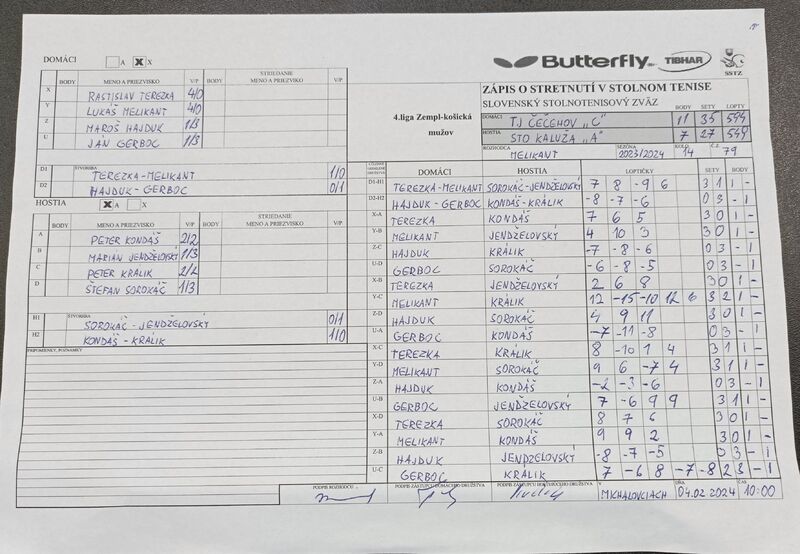 DOMÁCI A X X
BODY MENO A PRIEZVISKO V/P BODY STRIEDANIE MENO A PRIEZVISKO V/P
X RASTISLAV TEREZKA 4/0
Y LUKÁŠ MELIKANT 4/0
Z MAROŠ HAJDUK 1/3
U JÁN GERBOC 1/3
D1 ŠTVORHRA TEREZKA-MELIKANT 1/0
D2 HAJDUK-GERBOC 0/1
HOSTIA X A X
BODY MENO A PRIEZVISKO V/P BODY STRIEDANIE MENO A PRIEZVISKO V/P
A PETER KONDÁŠ 2/2
B MARIAN JENDŽELOVSKÝ 1/3
C PETER KRÁLIK 2/2
D ŠTEFAN SOROKÁČ 1/3
H1 ŠTVORHRA SOROKÁČ-JENDŽELOVSKÝ 0/1
H2 KONDÁŠ-KRÁLIK 1/0
PRIPOMIENKY, POZNÁMKY
Butterfly TIBHAR SSTZ
ZÁPIS O STRETNUTÍ V STOLNOM TENISE
SLOVENSKÝ STOLNOTENISOVÝ ZVÄZ
4.liga Zempl-košická
mužov
BODY SETY LOPTY
DOMÁCI TJ ČEČEHOV "C" 11 35 594
HOSTIA STO KALUŽA "A" 7 27 549
ROZHODCA MELIKANT SEZÓNA 2023/2024 KOLO 14 Č.Z. 79
DOMÁCI HOSTIA LOPTIČKY SETY BODY
D1-H1 TEREZKA-MELIKANT SOROKÁČ-JENDŽELOVSKÝ 7 8 -9 6 3 1 1 -
D2-H2 HAJDUK-GERBOC KONDÁŠ-KRÁLIK -8 -7 -6 0 3 - 1
X-A TEREZKA KONDÁŠ 7 6 5 3 0 1 -
Y-B MELIKANT JENDŽELOVSKÝ 4 10 3 3 0 1 -
Z-C HAJDUK KRÁLIK -7 -8 -6 0 3 - 1
U-D GERBOC SOROKÁČ -6 -8 -5 0 3 - 1
X-B TEREZKA JENDŽELOVSKÝ 2 6 8 3 0 1 -
Y-C MELIKANT KRÁLIK 12 -15 -10 12 6 3 2 1 -
Z-D HAJDUK SOROKÁČ 4 9 11 3 0 1 -
U-A GERBOC KONDÁŠ -7 -11 -8 0 3 - 1
X-C TEREZKA KRÁLIK 8 -10 1 4 3 1 1 -
Y-D MELIKANT SOROKÁČ 9 6 -7 4 3 1 1 -
Z-A HAJDUK KONDÁŠ -2 -3 -6 0 3 - 1
U-B GERBOC JENDŽELOVSKÝ 7 -6 9 9 3 1 1 -
X-D TEREZKA SOROKÁČ 8 7 6 3 0 1 -
Y-A MELIKANT KONDÁŠ 9 9 2 3 0 1 -
Z-B HAJDUK JENDŽELOVSKÝ -8 -7 -5 0 3 - 1
U-C GERBOC KRÁLIK 7 -6 8 -7 -8 2 3 - 1
PODPIS ROZHODCU PODPIS ZÁSTUPCU DOMÁCEHO DRUŽSTVA PODPIS ZÁSTUPCU HOSŤUJÚCEHO DRUŽSTVA V MICHALOVCIACH DŇA 04.02.2024 ČAS 10:00